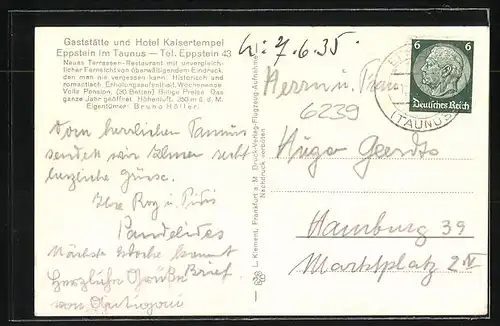 Gaststätte und Hotel Kaisertempel
Eppstein im Taunus — Tel. Eppstein 43
Neues Terrassen-Restaurant mit unvergleich-
licher Fernsicht von überwältigendem Eindruck,
den man nie vergessen kann. Historisch und
romantisch. Erholungsaufenthalt, Wochenende
Volle Pension. (30 Betten) Billige Preise. Das
ganze Jahr geöffnet. Höhenluft. 350 m ü. d. M.
Eigentümer: Bruno Höller.
7.6.35.
6 6
Deutsches Reich
(TAUNUS)
Herrn u. Frau
6239
Hugo Geerdts
Hamburg 39
Marktplatz 2 IV
Vom herrlichen Taunus
senden wir Ihnen recht
herzliche Grüsse.
Ihre u.
Pandelides
Nächste Woche kommt
Brief.
Herzliche Grüße
von
L. Klement, Frankfurt a. M. Druck-Verlag-Flugzeug-Aufnahme
Nachdruck verboten